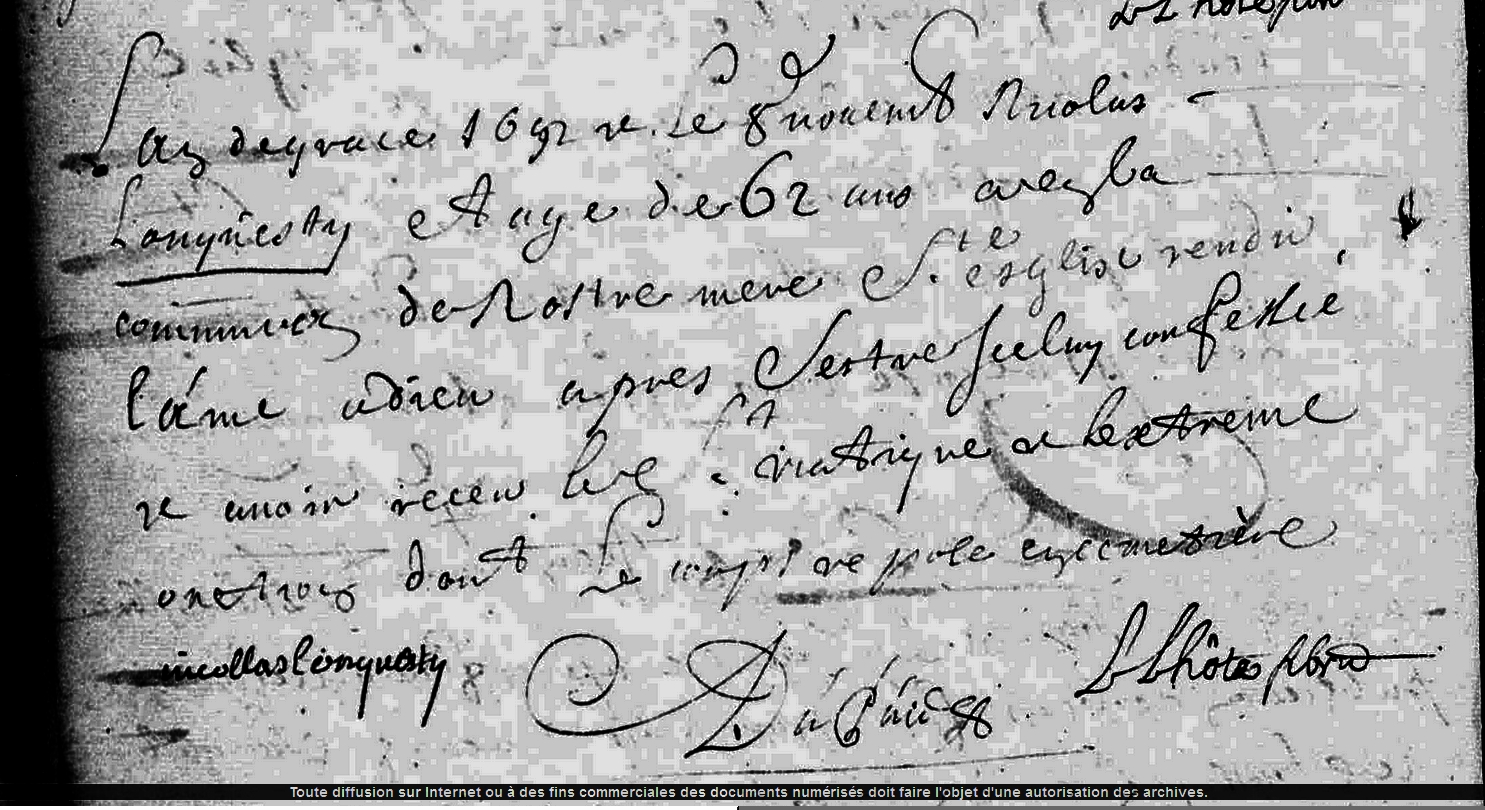 Lan de grace 1692 et Le 8 novemb Nicolas
Lonquesty et age de 62 ans avez la
commuion de Nostre mere Ste esglise rendu
l'áme a dieu apres S'estre Iceluy confessé
et avoir receu le St viatique et Lextreme
onction dont Le corps re pose en cimetière
nicollas lonquesty
L Lhôte pbre
Toute diffusion sur Internet ou à des fins commerciales des documents numérisés doit faire l'objet d'une autorisation des archives.